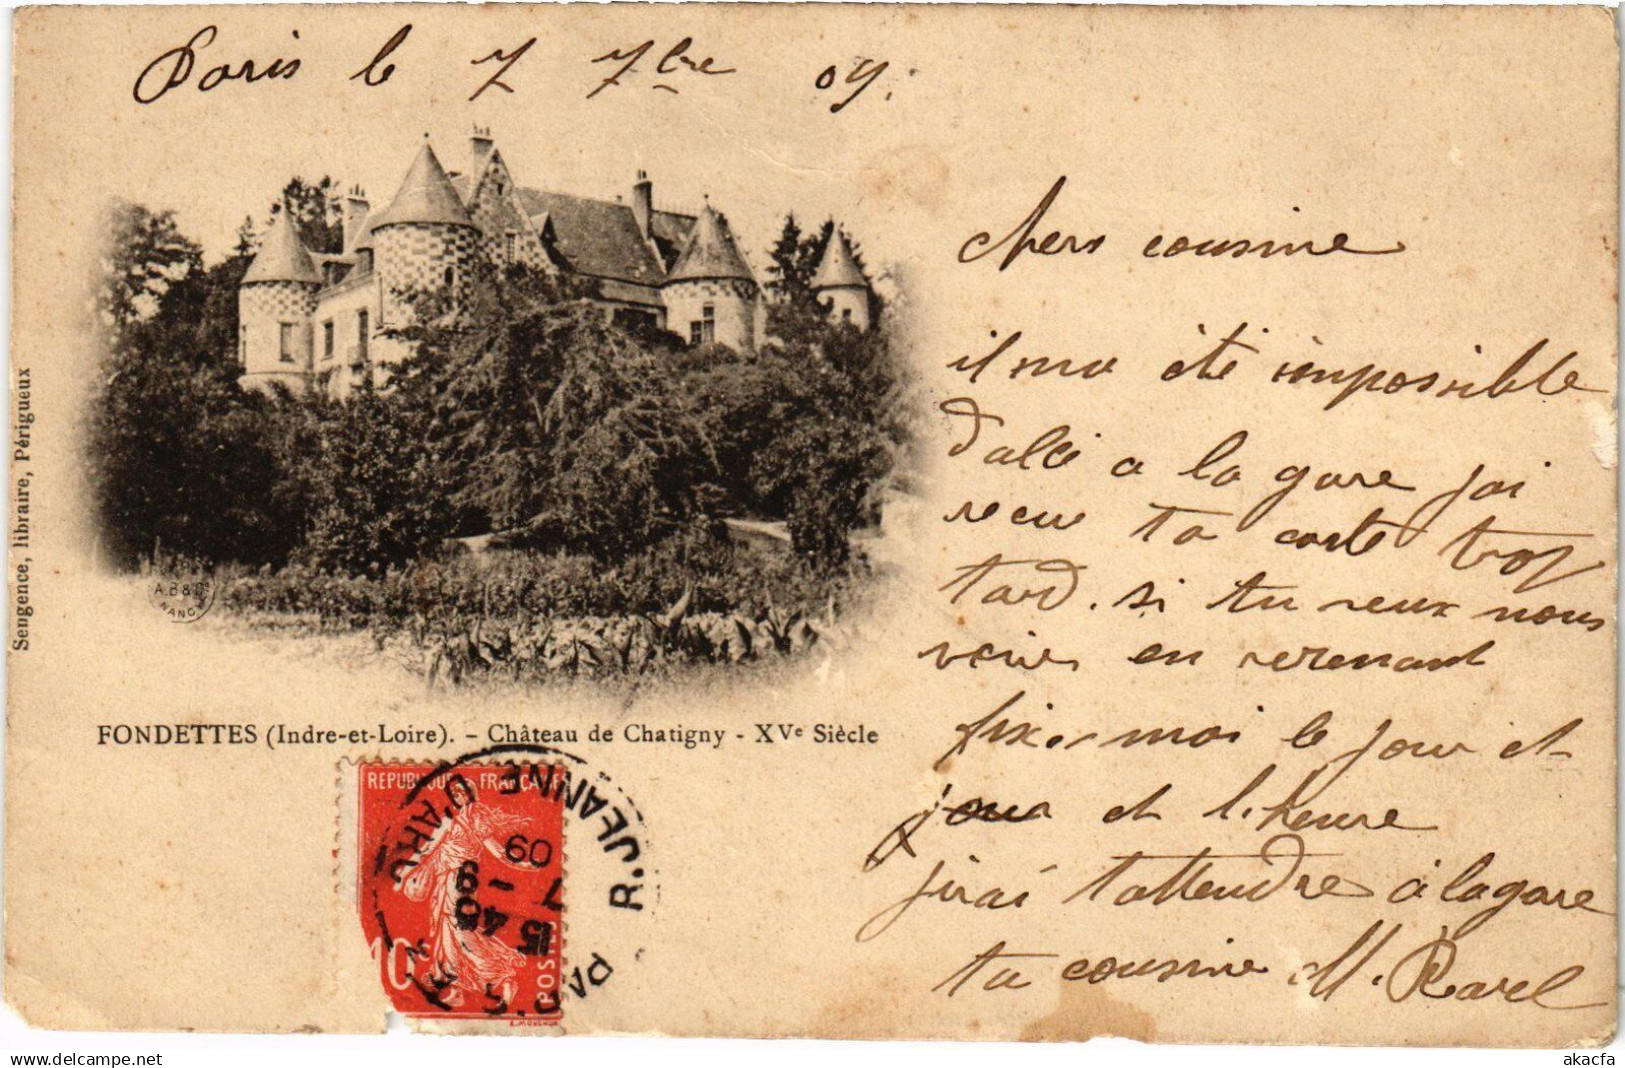 Paris le 7 7bre 09.
chers cousine
il ma été impossible
d'allé a la gare jai
recue ta carte trop
tard. si tu veux nous
venir en revenant
fixer moi le jour et
joua et l.heure
jirai tattendre à la gare
ta cousine M. Ravel
Sengence, libraire, Périgueux
A.B & Cie
NANCY
FONDETTES (Indre-et-Loire). – Château de Chatigny - XVe Siècle
REPUBLIQUE FRANÇAISE
10c
POSTES
E. MOUCHON
R. JEANNE D'ARC
PARIS
15 40
7 - 9
09
akacfa